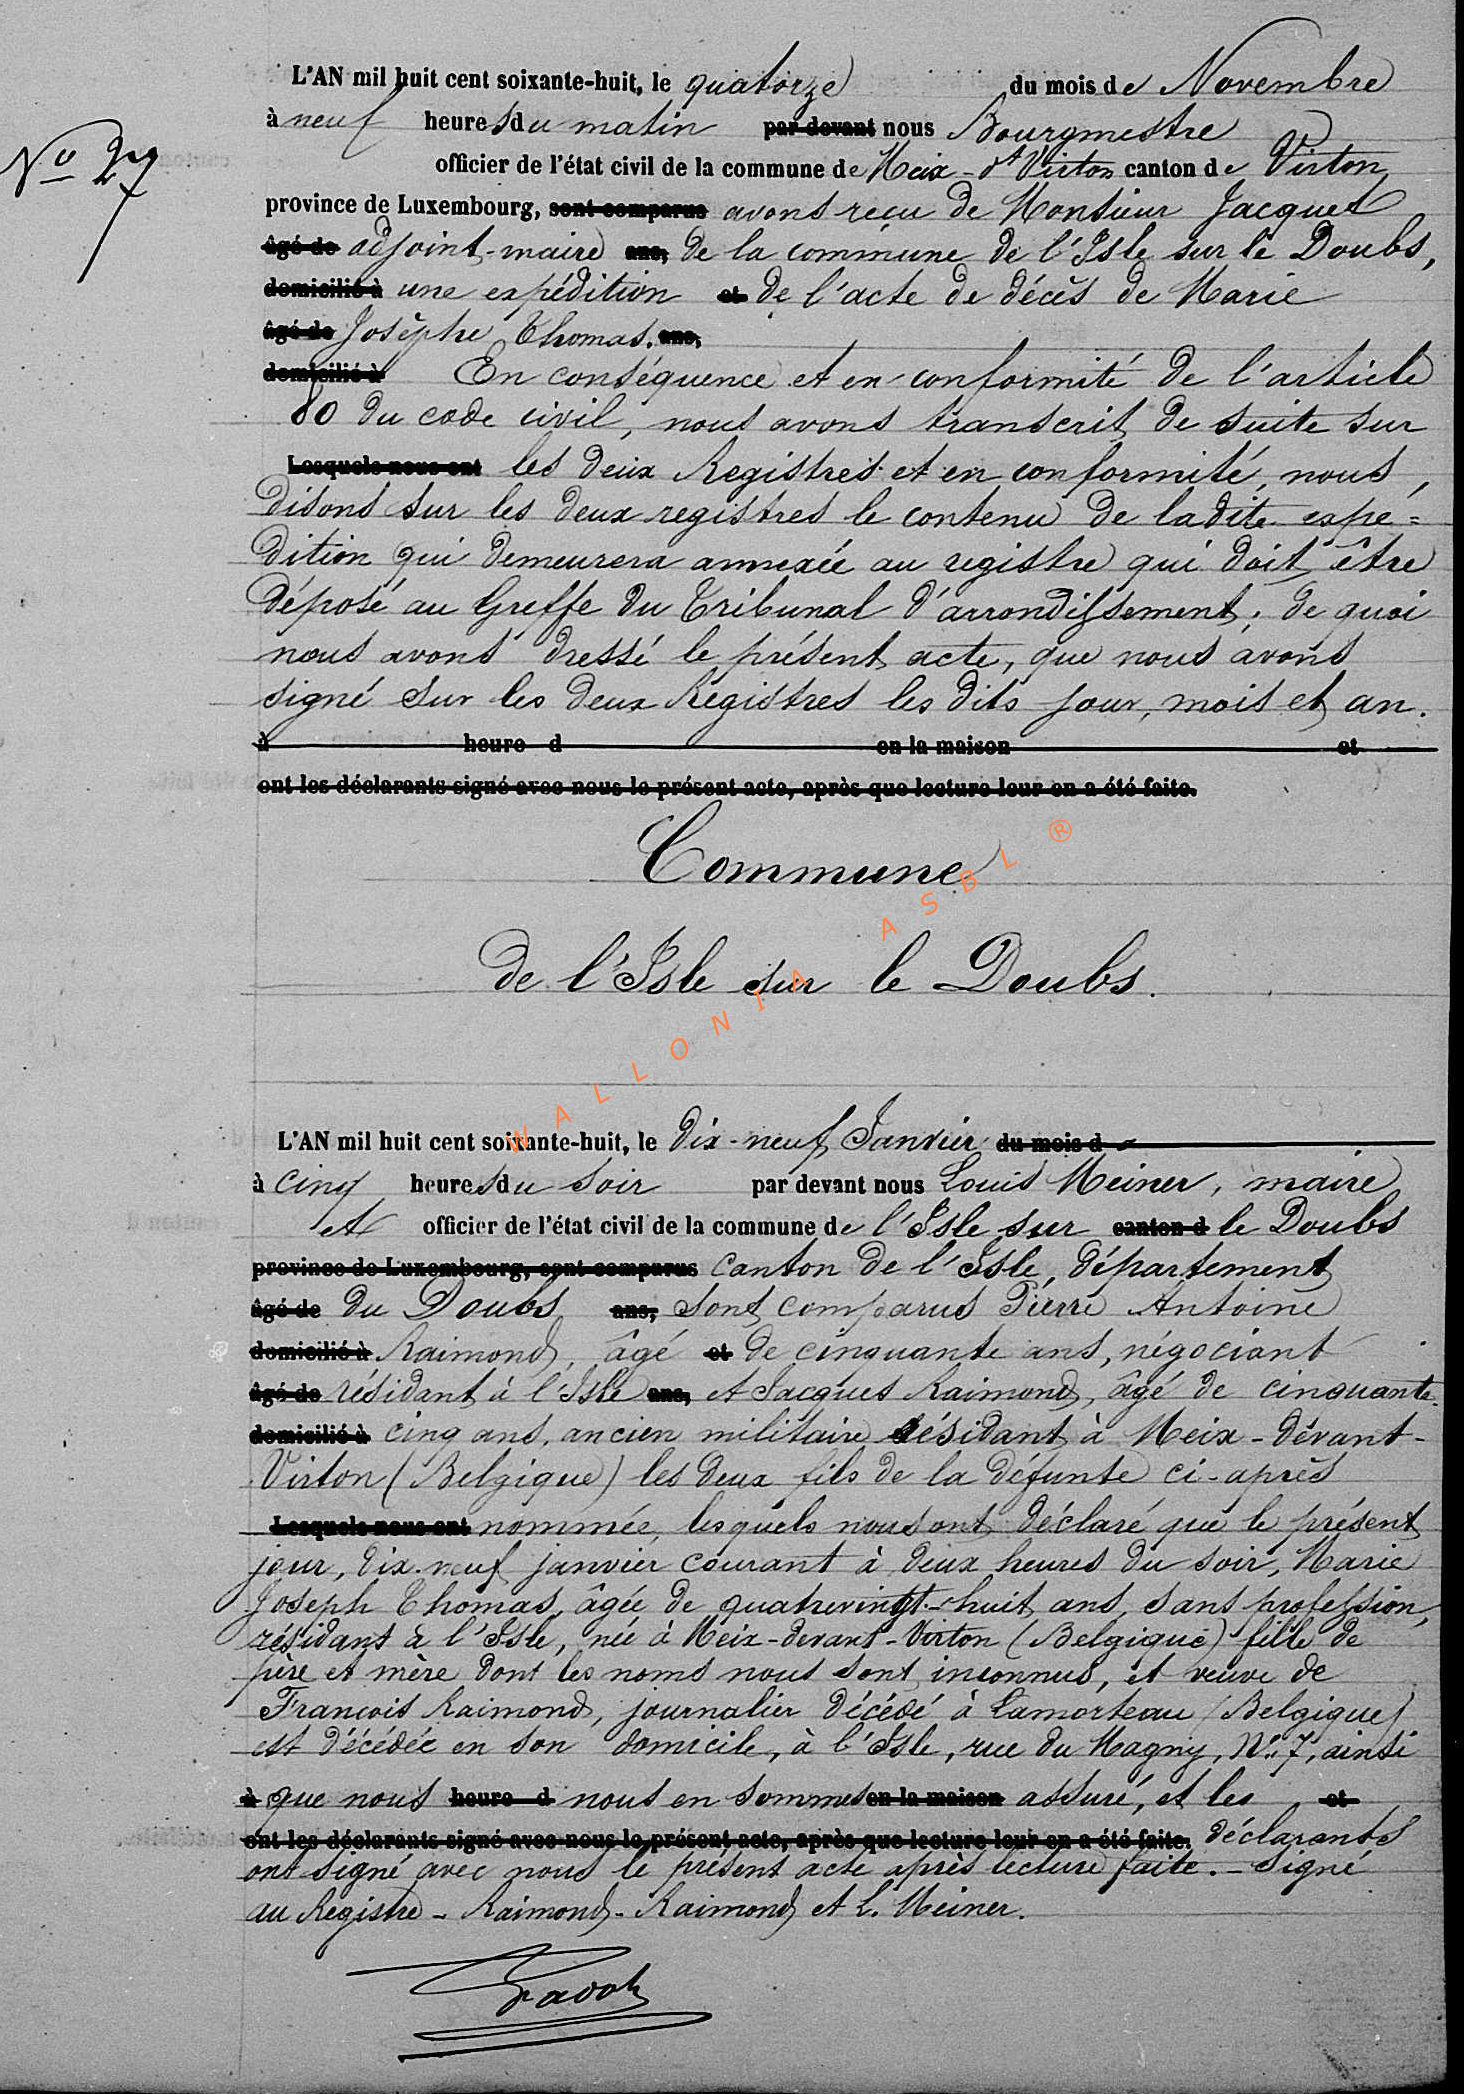 L'AN mil huit cent soixante-huit, le quatorze du mois de Novembre
à neuf heures du matin par devant nous Bourgmestre
No 27
officier de l'état civil de la commune de Meix-dt Virton canton de Virton
province de Luxembourg, sont comparus avons reçu de Monsieur Jacquet
âgé de adjoint-maire ans, de la commune de l'Isle sur le Doubs,
domicilié à une expédition et de l'acte de décès de Marie
âgé de Josèphe Thomas. ans,
domicilié à En conséquence et en conformité de l'article
80 du code civil, nous avons transcrit de suite sur
Lesquels nous ont les deux Registres et en conformité, nous
disons sur les deux registres le contenu de ladite expé=
dition qui demeurera annexée au registre qui doit être
déposé au Greffe du Tribunal d'arrondissement; de quoi
nous avons dressé le présent acte, que nous avons
signé sur les deux Registres les dits jour, mois et an.
à heure d en la maison et
ont les déclarants signé avec nous le présent acte, après que lecture leur en a été faite.
Commune
de l'Isle sur le Doubs.
WALLONIA ASBL ®
L'AN mil huit cent soixante-huit, le dix-neuf Janvier du mois d
à cinq heures du soir par devant nous Louis Meiner, maire
et officier de l'état civil de la commune de l'Isle sur canton d le Doubs
province de Luxembourg, sont comparus canton de l'Isle, département
âgé de du Doubs ans, sont comparus Pierre Antoine
domicilié à Raimond, âgé et de cinquante ans, négociant
âgé de résidant à l'Isle ans, et Jacques Raimond, âgé de cinquante-
domicilié à cinq ans, ancien militaire résidant à Meix-devant-
Virton (Belgique) les deux fils de la défunte ci-après
Lesquels nous ont nommée, lesquels nous ont déclaré que le présent
jour, dix-neuf janvier courant à deux heures du soir, Marie
Joseph Thomas, âgée de quatrevingt-huit ans, sans profession,
résidant à l'Isle, née à Meix-devant-Virton (Belgique) fille de
père et mère dont les noms nous sont inconnus, et veuve de
François Raimond, journalier décédé à Lamorteau (Belgique)
est décédée en son domicile, à l'Isle, rue du Magny, No 7, ainsi
à que nous heure d nous en sommes en la maison assuré, et les et
ont les déclarants signé avec nous le présent acte, après que lecture leur en a été faite. déclarants
ont signé avec nous le présent acte après lecture faite. - Signé
au Registre - Raimond - Raimond et L. Meiner.